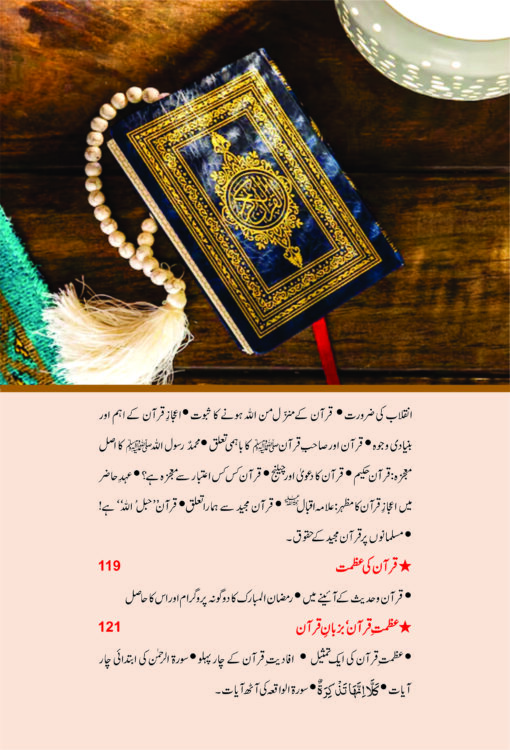 القرآن الكريم
انقلاب کی ضرورت • قرآن کے منزّل من اللہ ہونے کا ثبوت • اعجازِ قرآن کے اہم اور
بنیادی وجوہ • قرآن اور صاحبِ قرآن ﷺ کا باہمی تعلق • محمدٌ رسول اللہ ﷺ کا اصل
معجزہ: قرآن حکیم • قرآن کا دعویٰ اور چیلنج • قرآن کس کس اعتبار سے معجزہ ہے؟ • عہدِ حاضر
میں اعجازِ قرآن کا مظہر: علامہ اقبال • قرآن مجید سے ہمارا تعلق • قرآن ’’حبلُ اللہ‘‘ ہے!
• مسلمانوں پر قرآن مجید کے حقوق۔
★ قرآن کی عظمت 119
• قرآن وحدیث کے آئینے میں • رمضان المبارک کا دوگونہ پروگرام اور اس کا حاصل
★ عظمتِ قرآن‘ بزبانِ قرآن 121
• عظمتِ قرآن کی ایک تمثیل • افادیتِ قرآن کے چار پہلو • سورۃ الرحمٰن کی ابتدائی چار
آیات • كَلَّا اِنَّهَا تَذْكِرَةٌ • سورۃ الواقعہ کی آٹھ آیات۔